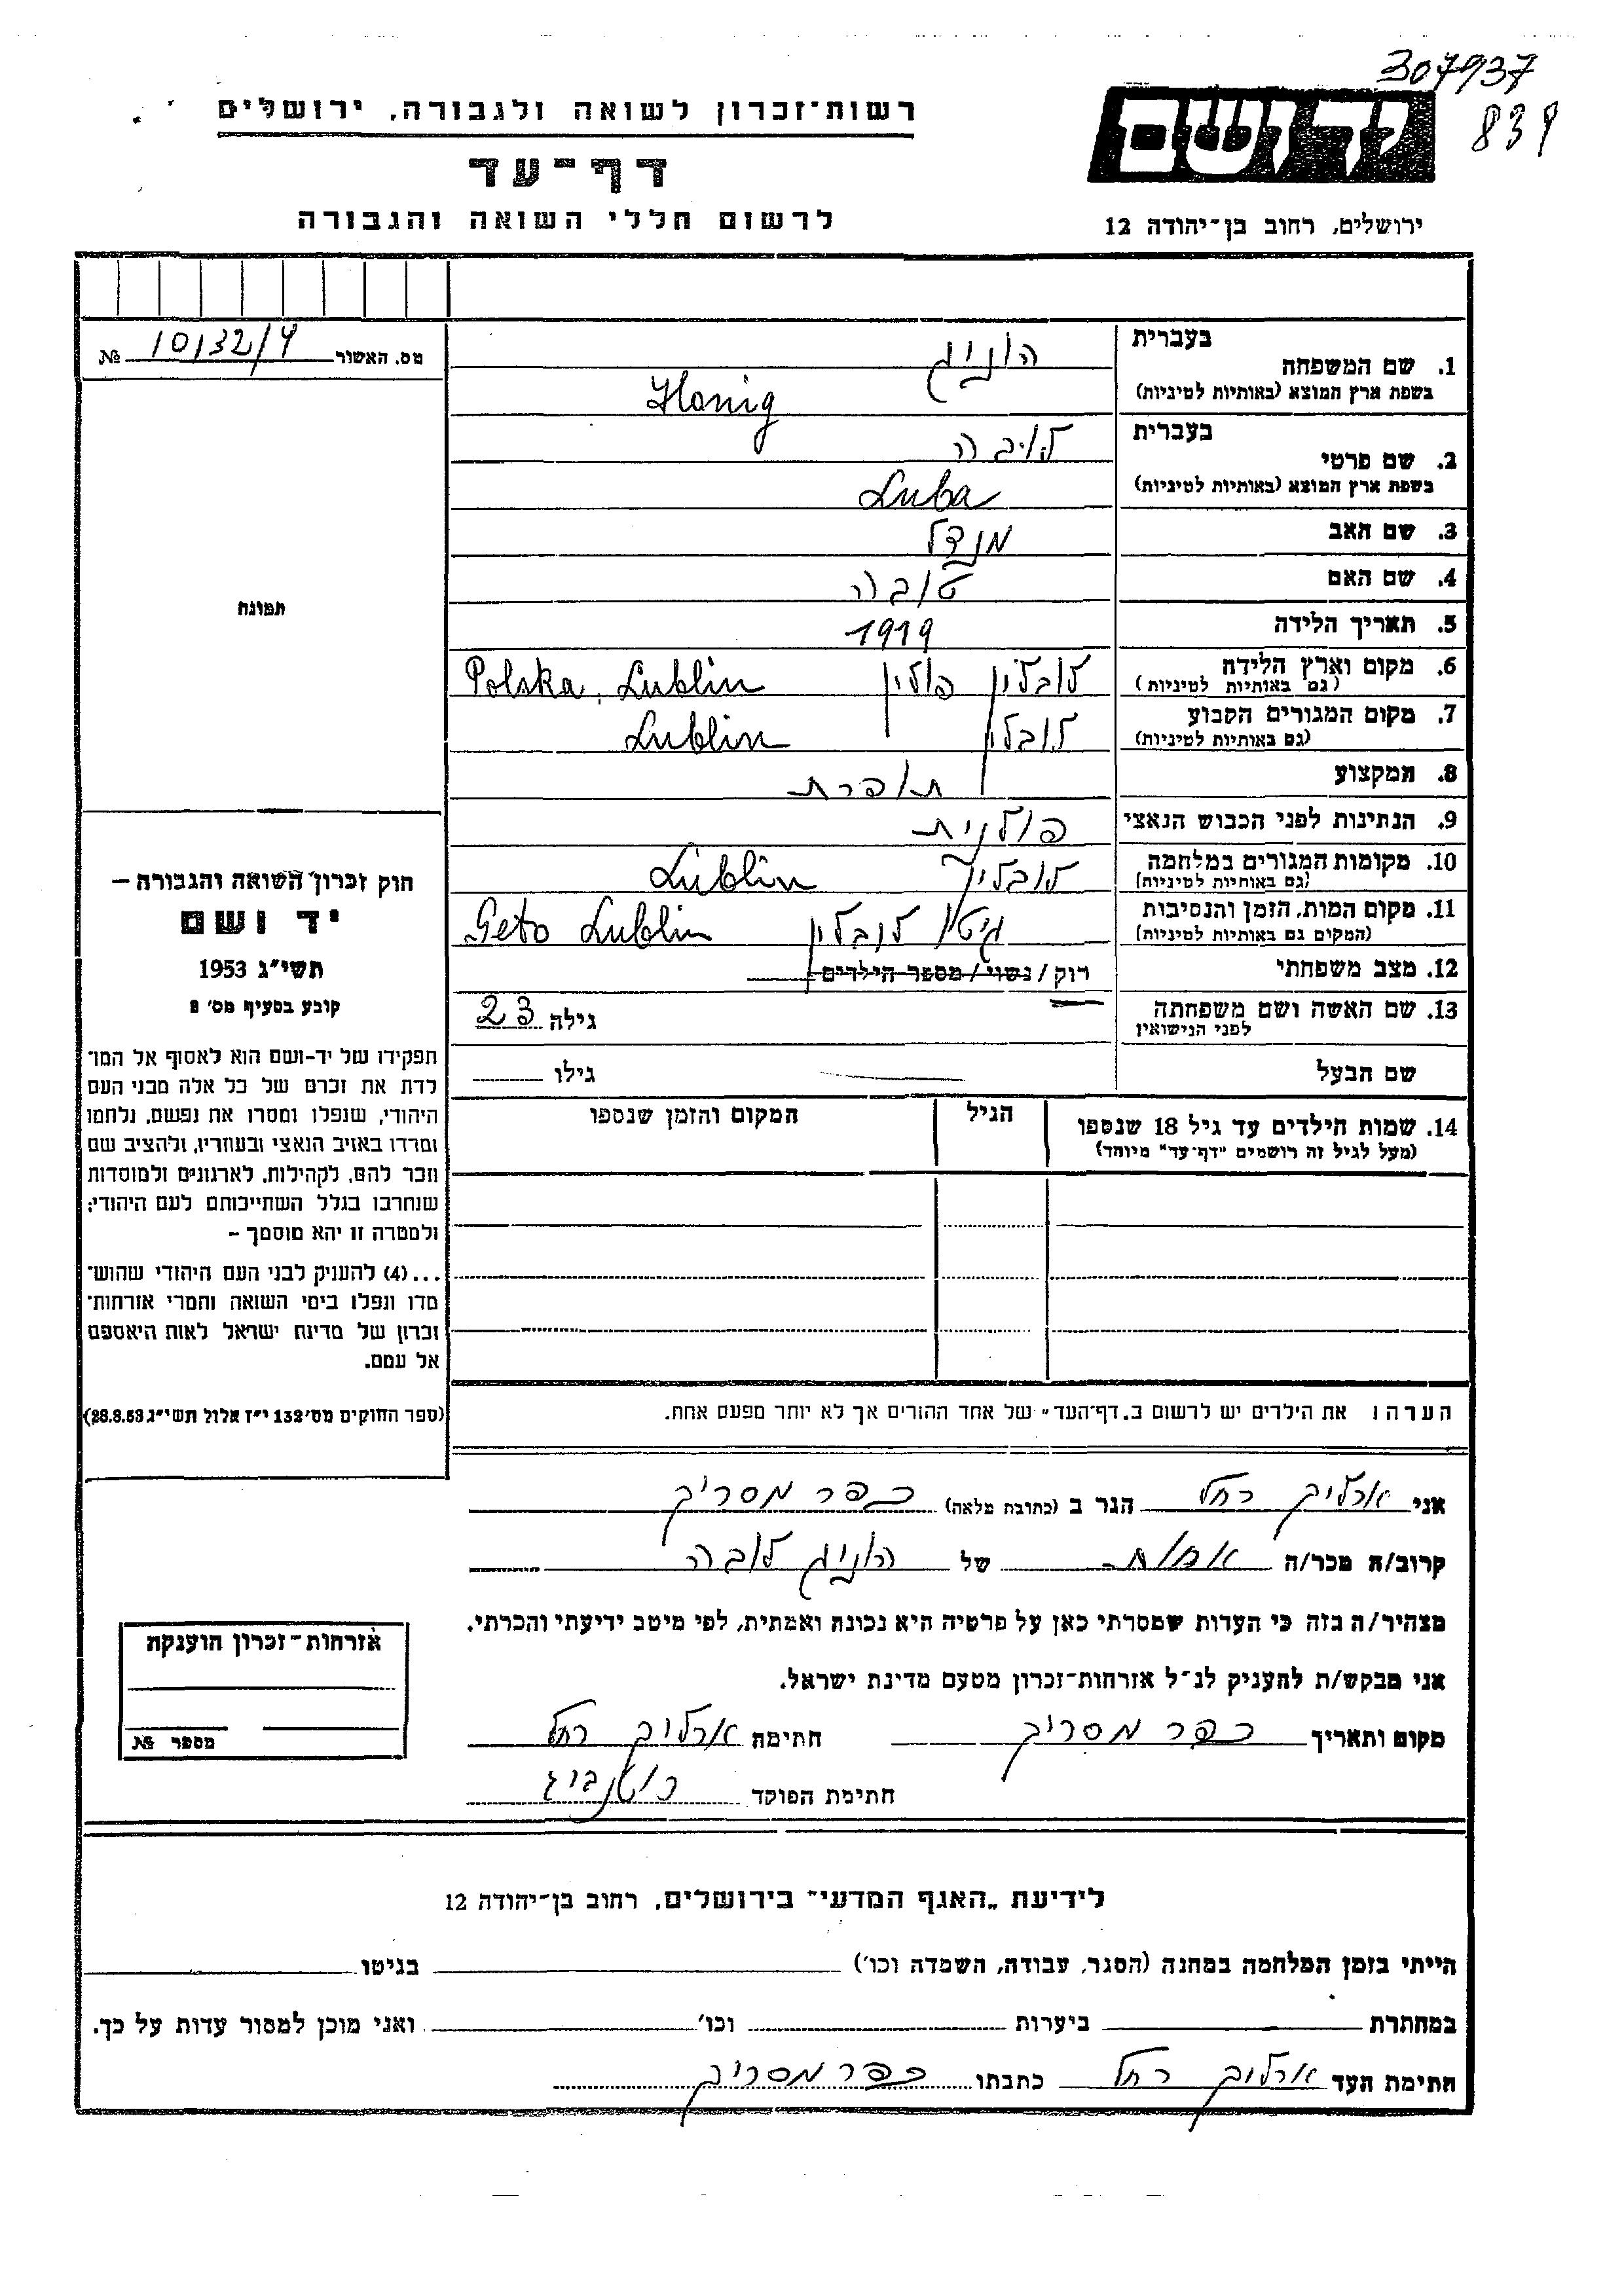 307937
839
ידושם
רשות־זכרון לשואה ולגבורה, ירושלים
דף־עד
לרשום חללי השואה והגבורה
ירושלים, רחוב בן־יהודה 12
מס. האשור 10132/4 №
בעברית
1. שם המשפחה הוניג
בשפת ארץ המוצא (באותיות לטיניות) Honig
בעברית
2. שם פרטי לובה
בשפת ארץ המוצא (באותיות לטיניות) Luba
3. שם האב מנדל
4. שם האם טובה
5. תאריך הלידה 1919
6. מקום וארץ הלידה לובלין פולין Polska, Lublin
(גם באותיות לטיניות)
7. מקום המגורים הקבוע לובלין Lublin
(גם באותיות לטיניות)
8. המקצוע תופרת
9. הנתינות לפני הכבוש הנאצי פולנית
10. מקומות המגורים במלחמה לובלין Lublin
(גם באותיות לטיניות)
11. מקום המות, הזמן והנסיבות גיטו לובלין Geto Lublin
(המקום גם באותיות לטיניות)
12. מצב משפחתי רוק / נשוי / מספר הילדים
13. שם האשה ושם משפחתה גילה 23
לפני הנישואין
שם הבעל גילו
14. שמות הילדים עד גיל 18 שנספו הגיל המקום והזמן שנספו
(מעל לגיל זה רושמים "דף־עד" מיוחד)
הערה: את הילדים יש לרשום ב„דף־העד" של אחד ההורים אך לא יותר מפעם אחת.
תמונה
חוק זכרון השואה והגבורה –
יד ושם
תשי"ג 1953
קובע בסעיף מס׳ 2
תפקידו של יד-ושם הוא לאסוף אל המו־
לדת את זכרם של כל אלה מבני העם
היהודי, שנפלו ומסרו את נפשם, נלחמו
ומרדו באויב הנאצי ובעוזריו, ולהציב שם
וזכר להם, לקהילות, לארגונים ולמוסדות
שנחרבו בגלל השתייכותם לעם היהודי;
ולמטרה זו יהא מוסמך –
...(4) להעניק לבני העם היהודי שהוש־
מדו ונפלו בימי השואה והמרי אזרחות־
זכרון של מדינת ישראל לאות היאספם
אל עמם.
(ספר החוקים מס׳ 132 י"ז אלול תשי"ג 28.8.53)
אני ארליך רחל הגר ב (כתובת מלאה) כפר מסריק
קרוב/ה מכר/ה אחות של הוניג לובה
מצהיר/ה בזה כי העדות שמסרתי כאן על פרטיה היא נכונה ואמתית, לפי מיטב ידיעתי והכרתי.
אני מבקש/ת להעניק לנ"ל אזרחות־זכרון מטעם מדינת ישראל.
מקום ותאריך כפר מסריק חתימה ארליך רחל
חתימת הפוקד
אזרחות־זכרון הוענקה
מספר №
לידיעת „האגף המדעי" בירושלים, רחוב בן־יהודה 12
הייתי בזמן המלחמה במחנה (הסגר, עבודה, השמדה וכו׳) בגיטו
במחתרת ביערות וכו׳ ואני מוכן למסור עדות על כך.
חתימת העד ארליך רחל כתבתו כפר מסריק